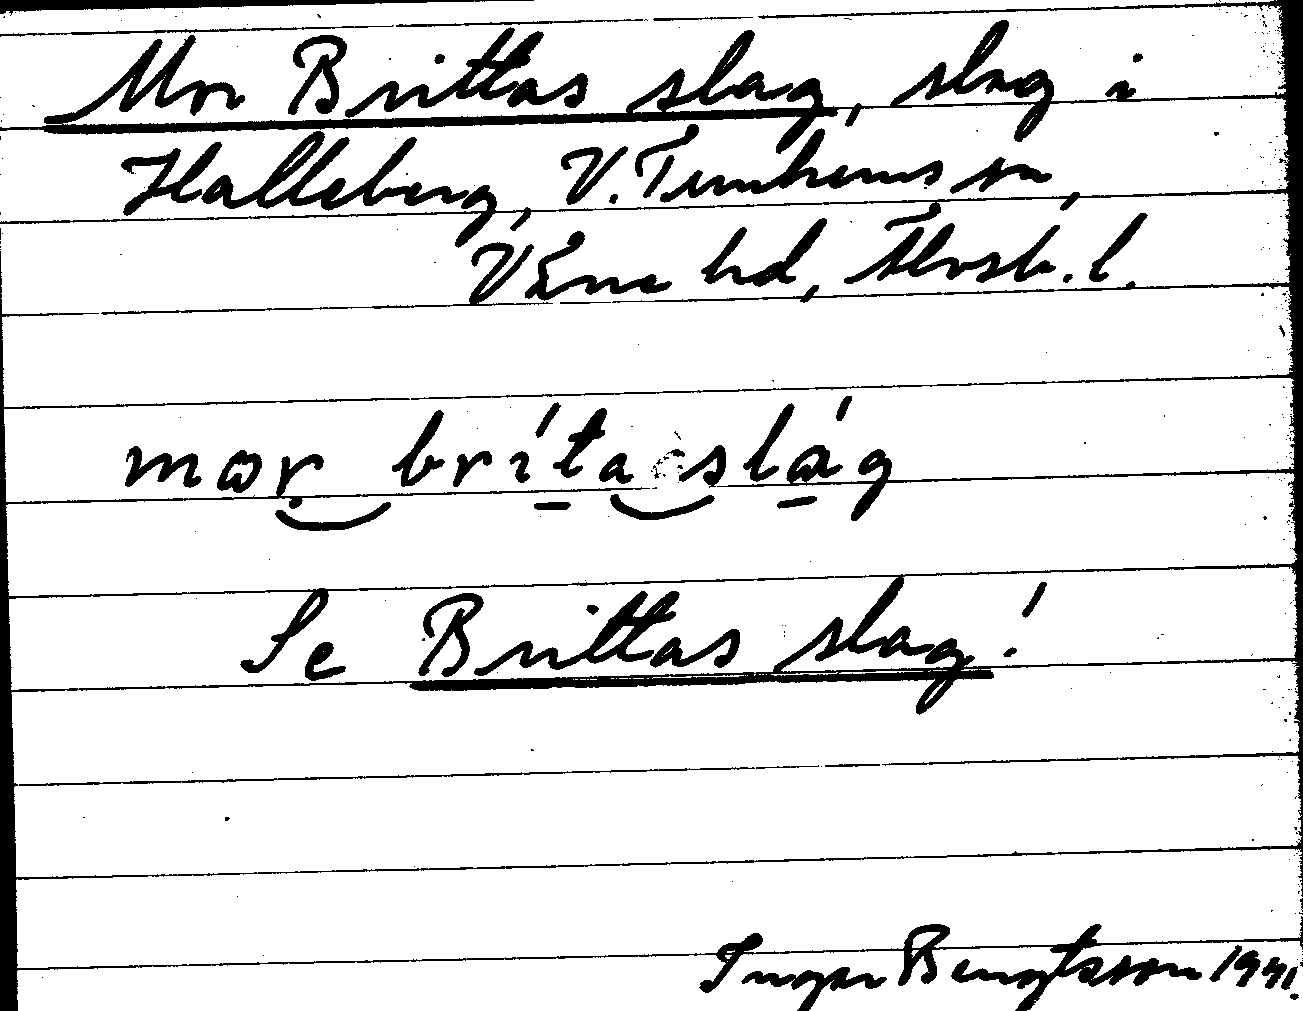 Mor Brittas slag, slag i
Halleberg, V. Tunhems sn,
Väne hd, Älvsb. l.
mɷr brítaslág
Se Brittas slag!
Ingar Bengtsson 1941.